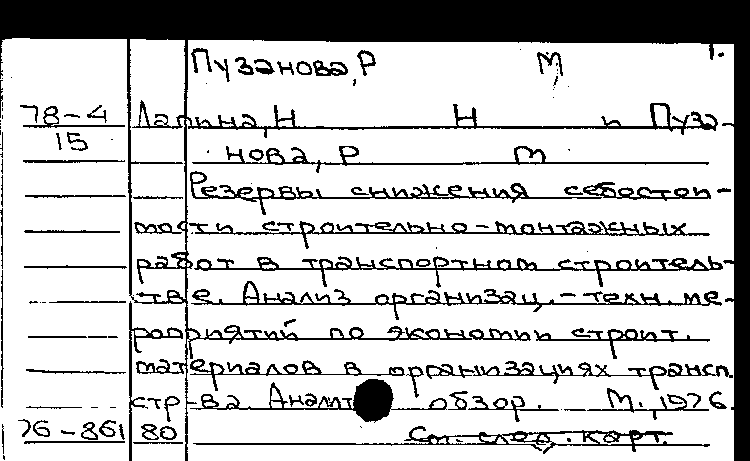 Пузанова, Р М 1.
78-4 Лапина, Н Н и Пуза-
15 нова, Р М
Резервы снижения себестои-
мости строительно-монтажных
работ в транспортном строитель-
стве. Анализ организац.-техн. ме-
роприятий по экономии строит.
материалов в организациях трансп.
стр-ва. Аналит обзор. М., 1976.
76-861 80 См. след. карт.